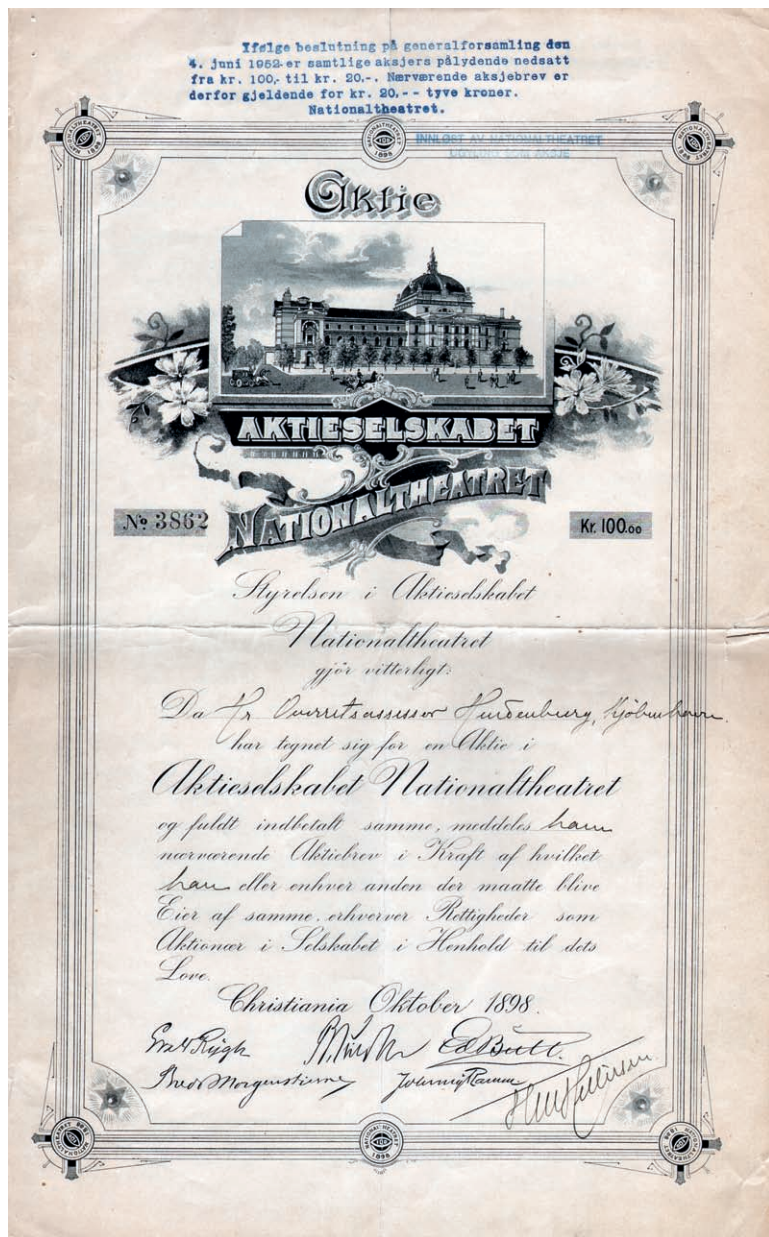 Ifølge beslutning på generalforsamling den
4. juni 1952 er samtlige aksjers pålydende nedsatt
fra kr. 100,- til kr. 20,-. Nærværende aksjebrev er
derfor gjeldende for kr. 20,-- tyve kroner.
Nationaltheatret.
INNLØST AV NATIONALTHEATRET
UGYLDIG SOM AKSJE
NATIONALTHEATRET 1898
NATIONALTHEATRET 1898
NATIONALTHEATRET 1898
Aktie
AKTIESELSKABET
NATIONALTHEATRET
No 3862
Kr. 100.00
Styrelsen i Aktieselskabet
Nationaltheatret
gjör vitterligt:
Da Hr Overretsassessor Hindenburg, Kjöbenhavn
har tegnet sig for en Aktie i
Aktieselskabet Nationaltheatret
og fuldt indbetalt samme, meddeles ham
nærværende Aktiebrev i Kraft af hvilket
han eller enhver anden der maatte blive
Eier af samme, erhverver Rettigheder som
Aktionær i Selskabet i Henhold til dets
Love.
Christiania Oktober 1898.
Ev. Rygh Ed Bull.
Bredo Morgenstierne
NATIONALTHEATRET 1898
NATIONALTHEATRET 1898
NATIONALTHEATRET 1898